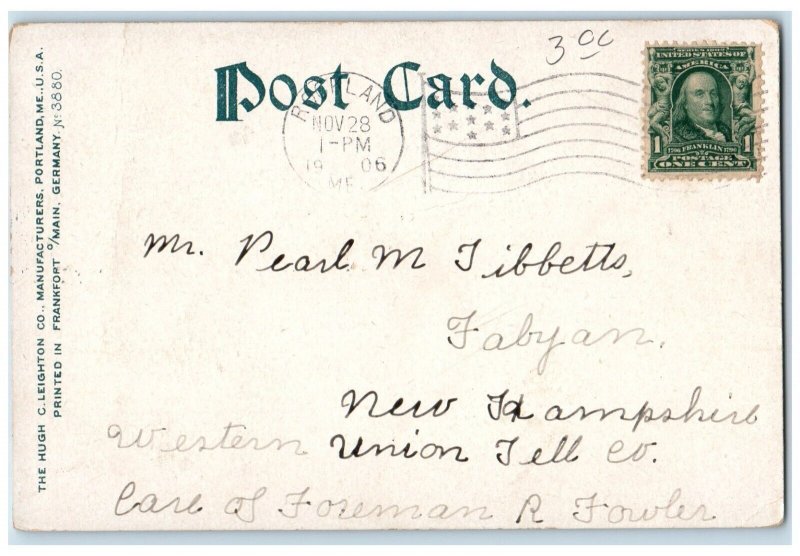 3 00
Post Card.
ROCKLAND
NOV 28
1-PM
19 06
ME.
SERIES 1902
UNITED STATES OF
AMERICA
1706 FRANKLIN 1790
1 POSTAGE 1
ONE CENT
Mr. Pearl M Tibbetts,
Fabyan.
New Hampshire
Western Union Tell Co.
Care of Foreman R Fowler
THE HUGH C. LEIGHTON CO., MANUFACTURERS, PORTLAND, ME., U.S.A.
PRINTED IN FRANKFORT O/MAIN, GERMANY. No 3880.